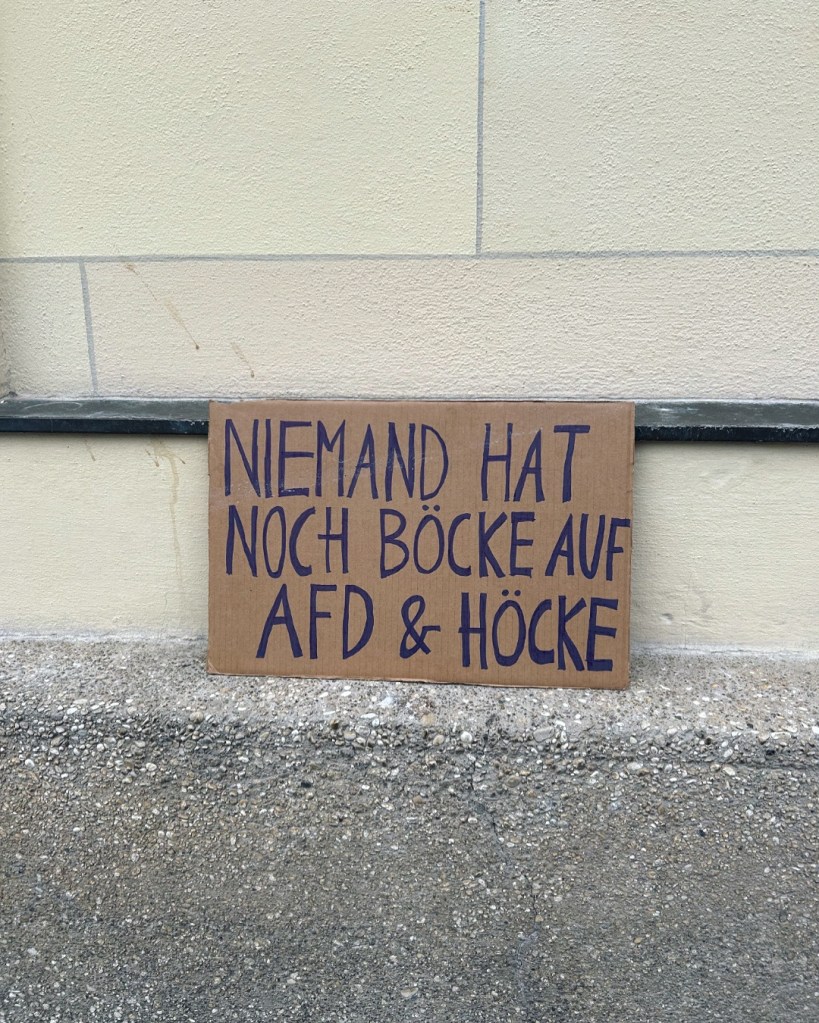 NIEMAND HAT
NOCH BÖCKE AUF
AFD & HÖCKE